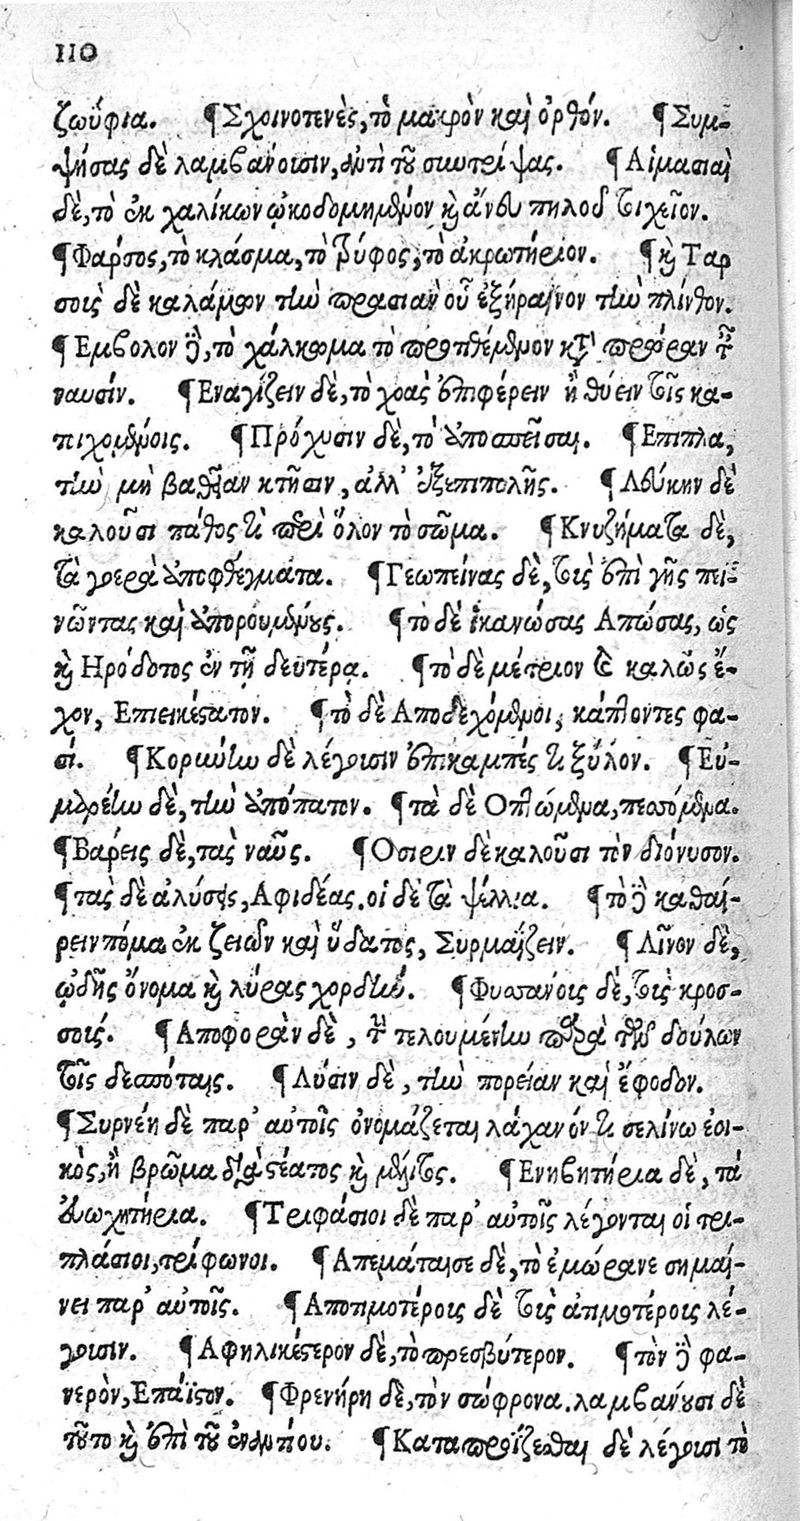 110
ζωΰφια. ¶Σχοινοτενὲς, τὸ μακρὸν καὶ ὀρθόν. ¶Συμ-
ψήσας δὲ λαμβάνοισιν, ἀντὶ τοῦ συντρίψας. ¶Αἱμασιαὶ
δὲ, τὸ ἐκ χαλίκων ᾠκοδομημένον καὶ ἄνευ πηλοῦ τειχεῖον.
¶Φάρσος, τὸ κλάσμα, τὸ ῥύφος, τὸ ἀκρωτήριον. ¶καὶ Ταρ
σοῖς δὲ καλάμων τὴν πρασιὰν οὗ ἐξήραινον τὴν πλίνθον.
¶Εμβολον δὲ, τὸ χάλκωμα τὸ προστιθέμενον κατὰ πρώραν ταῖς
ναυσίν. ¶Εναγίζειν δὲ, τὸ χοὰς ἐπιφέρειν ἢ θύειν τοῖς κα-
τοιχομένοις. ¶Πρόχυσιν δὲ, τὸ ἀποσπεῖσαι. ¶Επιπλα,
τὴν μὴ βαθεῖαν κτῆσιν, ἀλλ' ἐξεπιπολῆς. ¶Λεύκην δὲ
καλοῦσι πάθος τι περὶ ὅλον τὸ σῶμα. ¶Κνυζήματα δὲ,
τὰ γοερὰ ἀποφθέγματα. ¶Γεωπείνας δὲ, τοὺς ἐπὶ γῆς πει-
νῶντας καὶ ἀπορουμένους. ¶τὸ δὲ ἱκανώσας Απώσας, ὡς
καὶ Ηρόδοτος ἐν τῇ δευτέρᾳ. ¶τὸ δὲ μέτριον καὶ καλῶς ἔ-
χον, Επιεικέστατον. ¶τὸ δὲ Αποδεχόμενοι, κάπτοντες φα-
σί. ¶Κορυύτω δὲ λέγουσιν ἐπικαμπές τι ξύλον. ¶Εὐ-
μαρείην δὲ, τὴν ἀπόπατον. ¶τὰ δὲ Οπτώμενα, πεσσόμενα.
¶Βάρεις δὲ, τὰς ναῦς. ¶Οσιριν δὲ καλοῦσι τὸν διόνυσον.
¶τὰς δὲ ἀλύσεις, Αφιδέας. οἱ δὲ τὰ ψέλλια. ¶τὸ δὲ καθαί-
ρειν πόμα ἐκ ζειῶν καὶ ὕδατος, Συρμαΐζειν. ¶Λῖνον δὲ,
ᾠδῆς ὄνομα καὶ λύρας χορδήν. ¶Θυσάνοις δὲ, τοῖς κροσ-
σοῖς. ¶Αποφορὰν δὲ, τὴν τελουμένην παρὰ τῶν δούλων
τοῖς δεσπόταις. ¶Λύσιν δὲ, τὴν πορείαν καὶ ἔφοδον.
¶Συρνέη δὲ παρ' αὐτοῖς ὀνομάζεται λάχανόν τι σελίνῳ ἐοι-
κὸς, ἢ βρῶμα διὰ στέατος καὶ μέλιτος. ¶Ενηβητήρια δὲ, τὰ
ἐνωχητήρια. ¶Τριφάσιοι δὲ παρ' αὐτοῖς λέγονται οἱ τρι-
πλάσιοι, τρίφωνοι. ¶Απεμάταισε δὲ, τὸ ἐμώρανε σημαί-
νει παρ' αὐτοῖς. ¶Αποτιμοτέροις δὲ τοῖς ἀτιμοτέροις λέ-
γουσιν. ¶Αφηλικέστερον δὲ, τὸ πρεσβύτερον. ¶τὸν δὲ φα-
νερὸν, Επάϊστον. ¶Φρενήρη δὲ, τὸν σώφρονα. λαμβάνουσι δὲ
τοῦτο καὶ ἐπὶ τοῦ ἐναντίου. ¶Καταπροΐξεσθαι δὲ λέγουσι τὸ